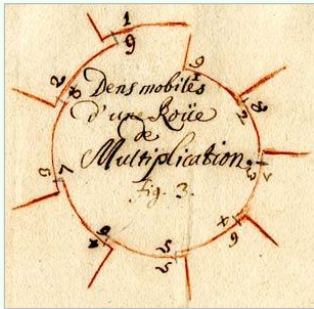 1
9
Dens mobiles
d'une Roüe
de
Multiplication.
Fig. 3.
9
8
2
6
4
5
5
7
2
8